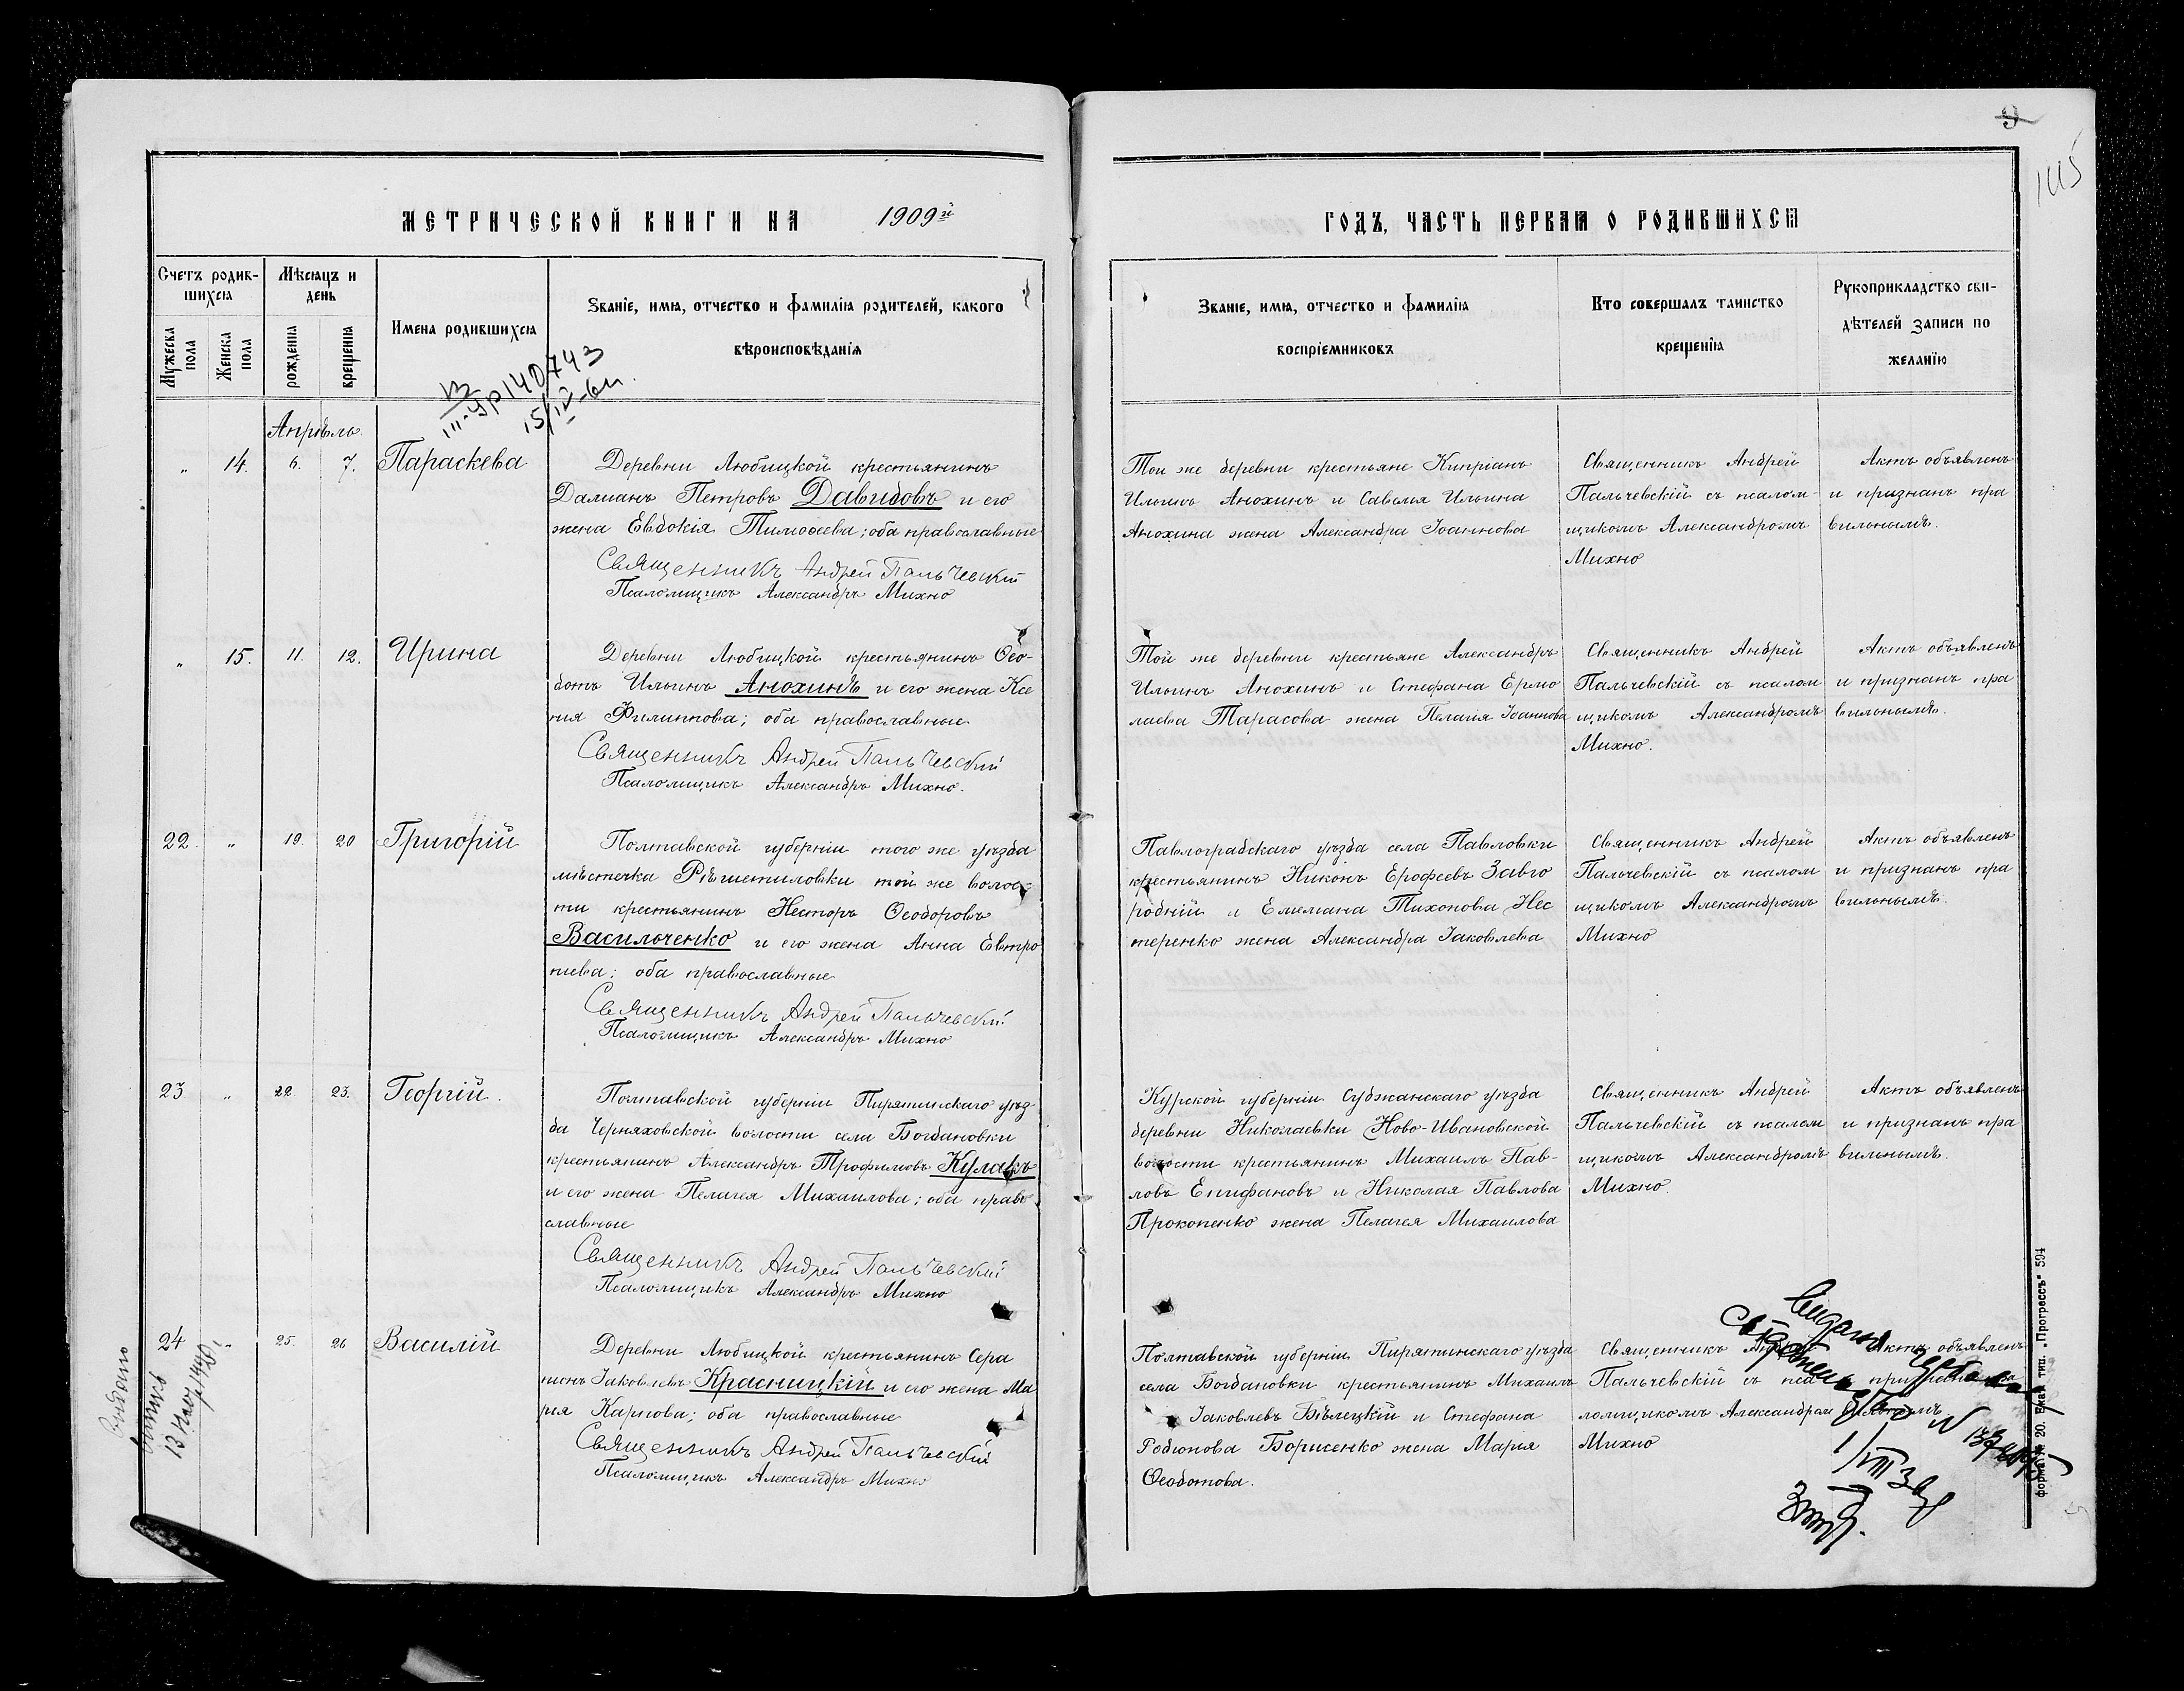 МЕТРИЧЕСКОЙ КНИГИ НА 1909й
Счетъ родив-
шихся
Мѣсяцъ и
день
Мужеска пола
Женска пола
рожденія
крещенія
Имена родившихся
Званіе, имя, отчество и фамилія родителей, какого
вѣроисповѣданія
15/12
Апрѣль.
„ 14. 6. 7. Параскева
Деревни Любицкой крестьянинъ
Даміанъ Петровъ Давидовъ и его
жена Евдокія Тимоѳеева; оба православные
Священникъ Андрей Пальчевскій
Псаломщикъ Александръ Михно
„ 15. 11. 12. Ирина
Деревни Любицкой крестьянинъ Ѳео-
дотъ Ильинъ Анохинъ и его жена Ксе
нія Филиппова; оба православные
Священникъ Андрей Пальчевскій
Псаломщикъ Александръ Михно.
22. „ 19. 20 Григорій
Полтавской губерніи того же уѣзда
мѣстечка Рѣшетиловки той же волос-
ти крестьянинъ Несторъ Ѳеодоровъ
Васильченко и его жена Анна Евтро
піева; оба православные
Священникъ Андрей Пальчевскій
Псаломщикъ Александръ Михно
23 „ 22. 23. Георгій.
Полтавской губерніи Пирятинскаго уѣз-
да Черняховской волости села Богдановки
крестьянинъ Александръ Трофимовъ Кулакъ
и его жена Пелагея Михаилова; оба право
славные
Священникъ Андрей Пальчевскій
Псаломщикъ Александръ Михно
24 „ 25. 26 Василій
Деревни Любицкой крестьянинъ Сера
піонъ Іаковлевъ Красницкій и его жена Ма
рія Карпова; оба православные
Священникъ Андрей Пальчевскій
Псаломщикъ Александръ Михно
ГОДЪ, ЧАСТЬ ПЕРВАЯ О РОДИВШИХСЯ
Званіе, имя, отчество и фамилія
воспріемниковъ
Кто совершалъ таинство
крещенія
Рукоприкладство сви-
дѣтелей записи по
желанію
Той же деревни крестьяне Кипріанъ
Ильинъ Анохинъ и Савелія Ильина
Анохина жена Александра Іоаннова
Священникъ Андрей
Пальчевскій съ псалом-
щикомъ Александромъ
Михно
Актъ объявленъ
и признанъ пра
вильнымъ.
Той же деревни крестьяне Александръ
Ильинъ Анохинъ и Стефана Ермо
лаева Тарасова жена Пелагія Іоаннова
Священникъ Андрей
Пальчевскій съ псалом
щикомъ Александромъ
Михно.
Актъ объявленъ
и признанъ пра
вильнымъ.
Павлоградскаго уѣзда села Павловки
крестьянинъ Никонъ Ерофеевъ Завго
родній и Емеліана Тихонова Нес
теренко жена Александра Іаковлева
Священникъ Андрей
Пальчевскій съ псалом
щикомъ Александромъ
Михно
Актъ объявленъ
и признанъ пра
вильнымъ.
Курской губерніи Суджанскаго уѣзда
деревни Николаевки Ново-Ивановской
волости крестьянинъ Михаилъ Пав-
ловъ Епифановъ и Николая Павлова
Прокопенко жена Пелагея Михаилова
Священникъ Андрей
Пальчевскій съ псалом
щикомъ Александромъ
Михно.
Актъ объявленъ
и признанъ пра
вильнымъ.
Полтавской губерніи Пирятинскаго уѣзда
села Богдановки крестьянинъ Михаилъ
Іаковлевъ Бѣлецкій и Стефана
Родіонова Борисенко жена Марія
Ѳеодотова.
Священникъ Андрей
Пальчевскій съ пса
ломщикомъ Александромъ
Михно
Актъ объявленъ
и признанъ пра
вильнымъ.
форматъ № 20. Екат. тип. „Прогрессъ“ 594